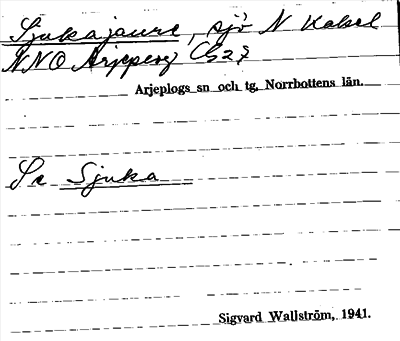 Sjukajaure, sjö N Kabel
NNO Arjeplog
Arjeplogs sn och tg, Norrbottens län.
Se Sjuka
Sigvard Wallström, 1941.